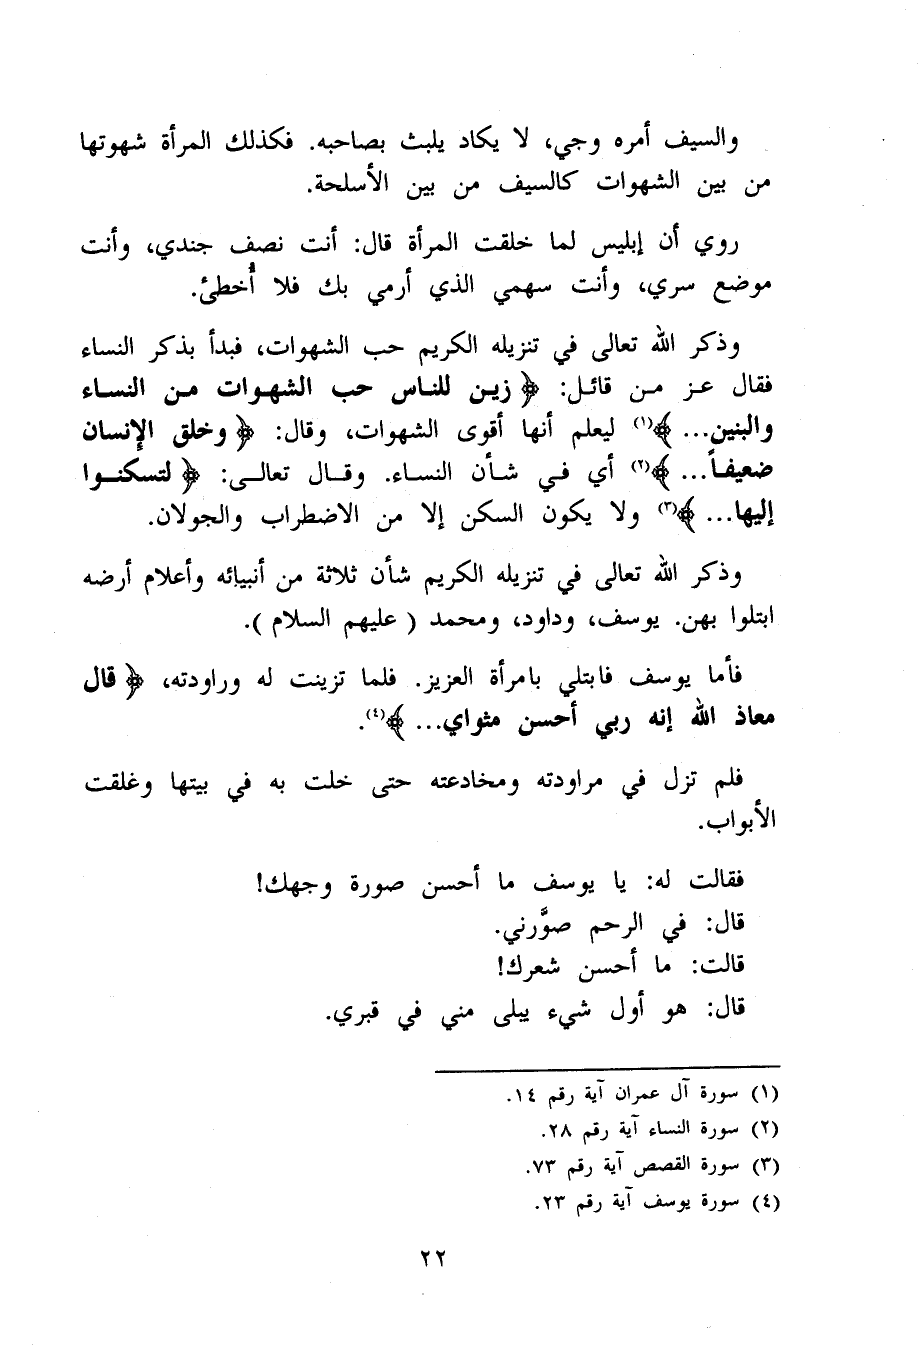 والسيف أمره وجي، لا يكاد يلبث بصاحبه. فكذلك المرأة شهوتها
من بين الشهوات كالسيف من بين الأسلحة.
روي أن إبليس لما خلقت المرأة قال: أنت نصف جندي، وأنت
موضع سري، وأنت سهمي الذي أرمي بك فلا أُخطئ.
وذكر الله تعالى في تنزيله الكريم حب الشهوات، فبدأ بذكر النساء
فقال عز من قائل: ﴿ زين للناس حب الشهوات من النساء
والبنين... ﴾(١) ليعلم أنها أقوى الشهوات، وقال: ﴿ وخلق الإنسان
ضعيفاً... ﴾(٢) أي في شأن النساء. وقال تعالى: ﴿ لتسكنوا
إليها... ﴾(٣) ولا يكون السكن إلا من الاضطراب والجولان.
وذكر الله تعالى في تنزيله الكريم شأن ثلاثة من أنبيائه وأعلام أرضه
ابتلوا بهن. يوسف، وداود، ومحمد ( عليهم السلام ).
فأما يوسف فابتلي بامرأة العزيز. فلما تزينت له وراودته، ﴿ قال
معاذ الله إنه ربي أحسن مثواي... ﴾(٤).
فلم تزل في مراودته ومخادعته حتى خلت به في بيتها وغلقت
الأبواب.
فقالت له: يا يوسف ما أحسن صورة وجهك!
قال: في الرحم صوَّرني.
قالت: ما أحسن شعرك!
قال: هو أول شيء يبلى مني في قبري.
(١) سورة آل عمران آية رقم ١٤.
(٢) سورة النساء آية رقم ٢٨.
(٣) سورة القصص آية رقم ٧٣.
(٤) سورة يوسف آية رقم ٢٣.
٢٢